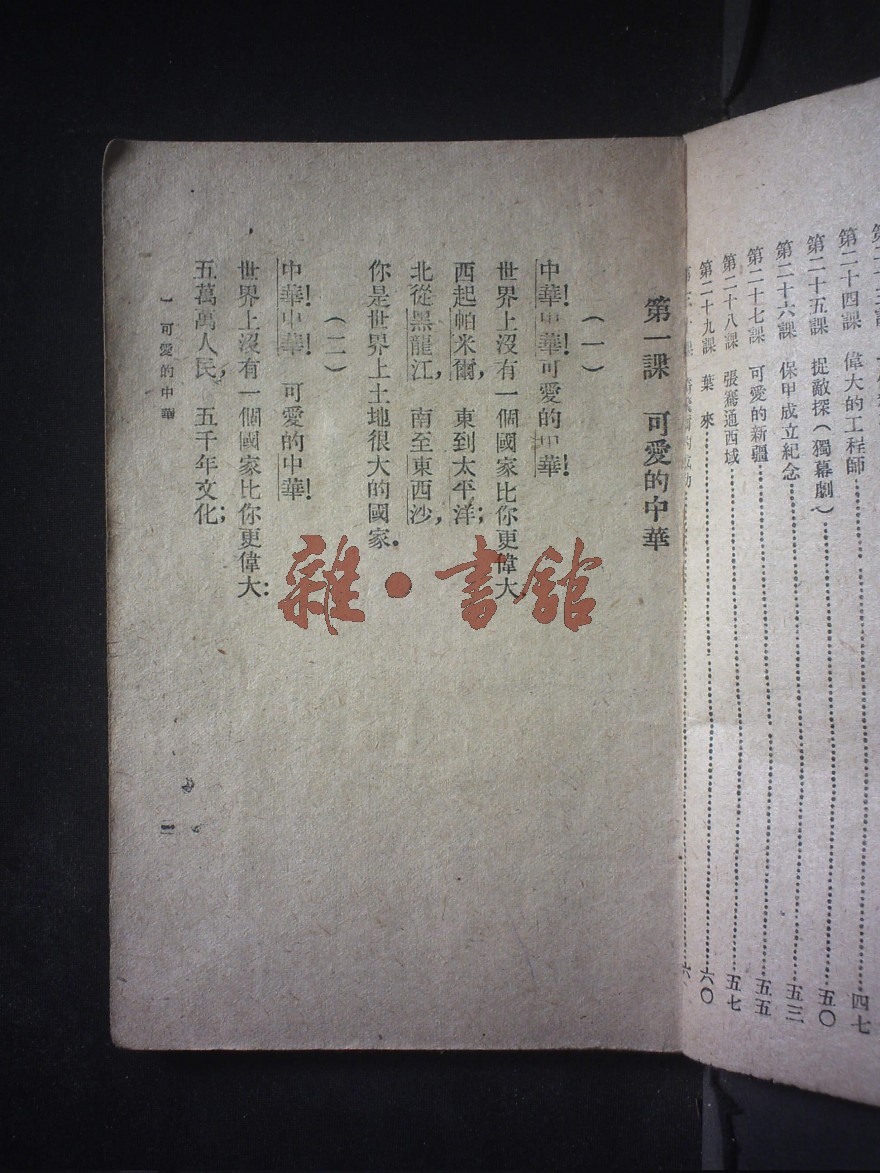 第二十四課 偉大的工程師……四七
第二十五課 捉敵探(獨幕劇)……五〇
第二十六課 保甲成立紀念……五三
第二十七課 可愛的新疆……五五
第二十八課 張騫通西域……五七
第二十九課 葉 來……六〇
第一課 可愛的中華
(一)
中華!中華可愛的中華!
世界上沒有一個國家比你更偉大
西起帕米爾,東到太平洋;
北從黑龍江,南至東西沙,
你是世界上土地很大的國家.
(二)
中華!中華!可愛的中華!
世界上沒有一個國家比你更偉大:
五萬萬人民,五千年文化;
可愛的中華
雜·書館